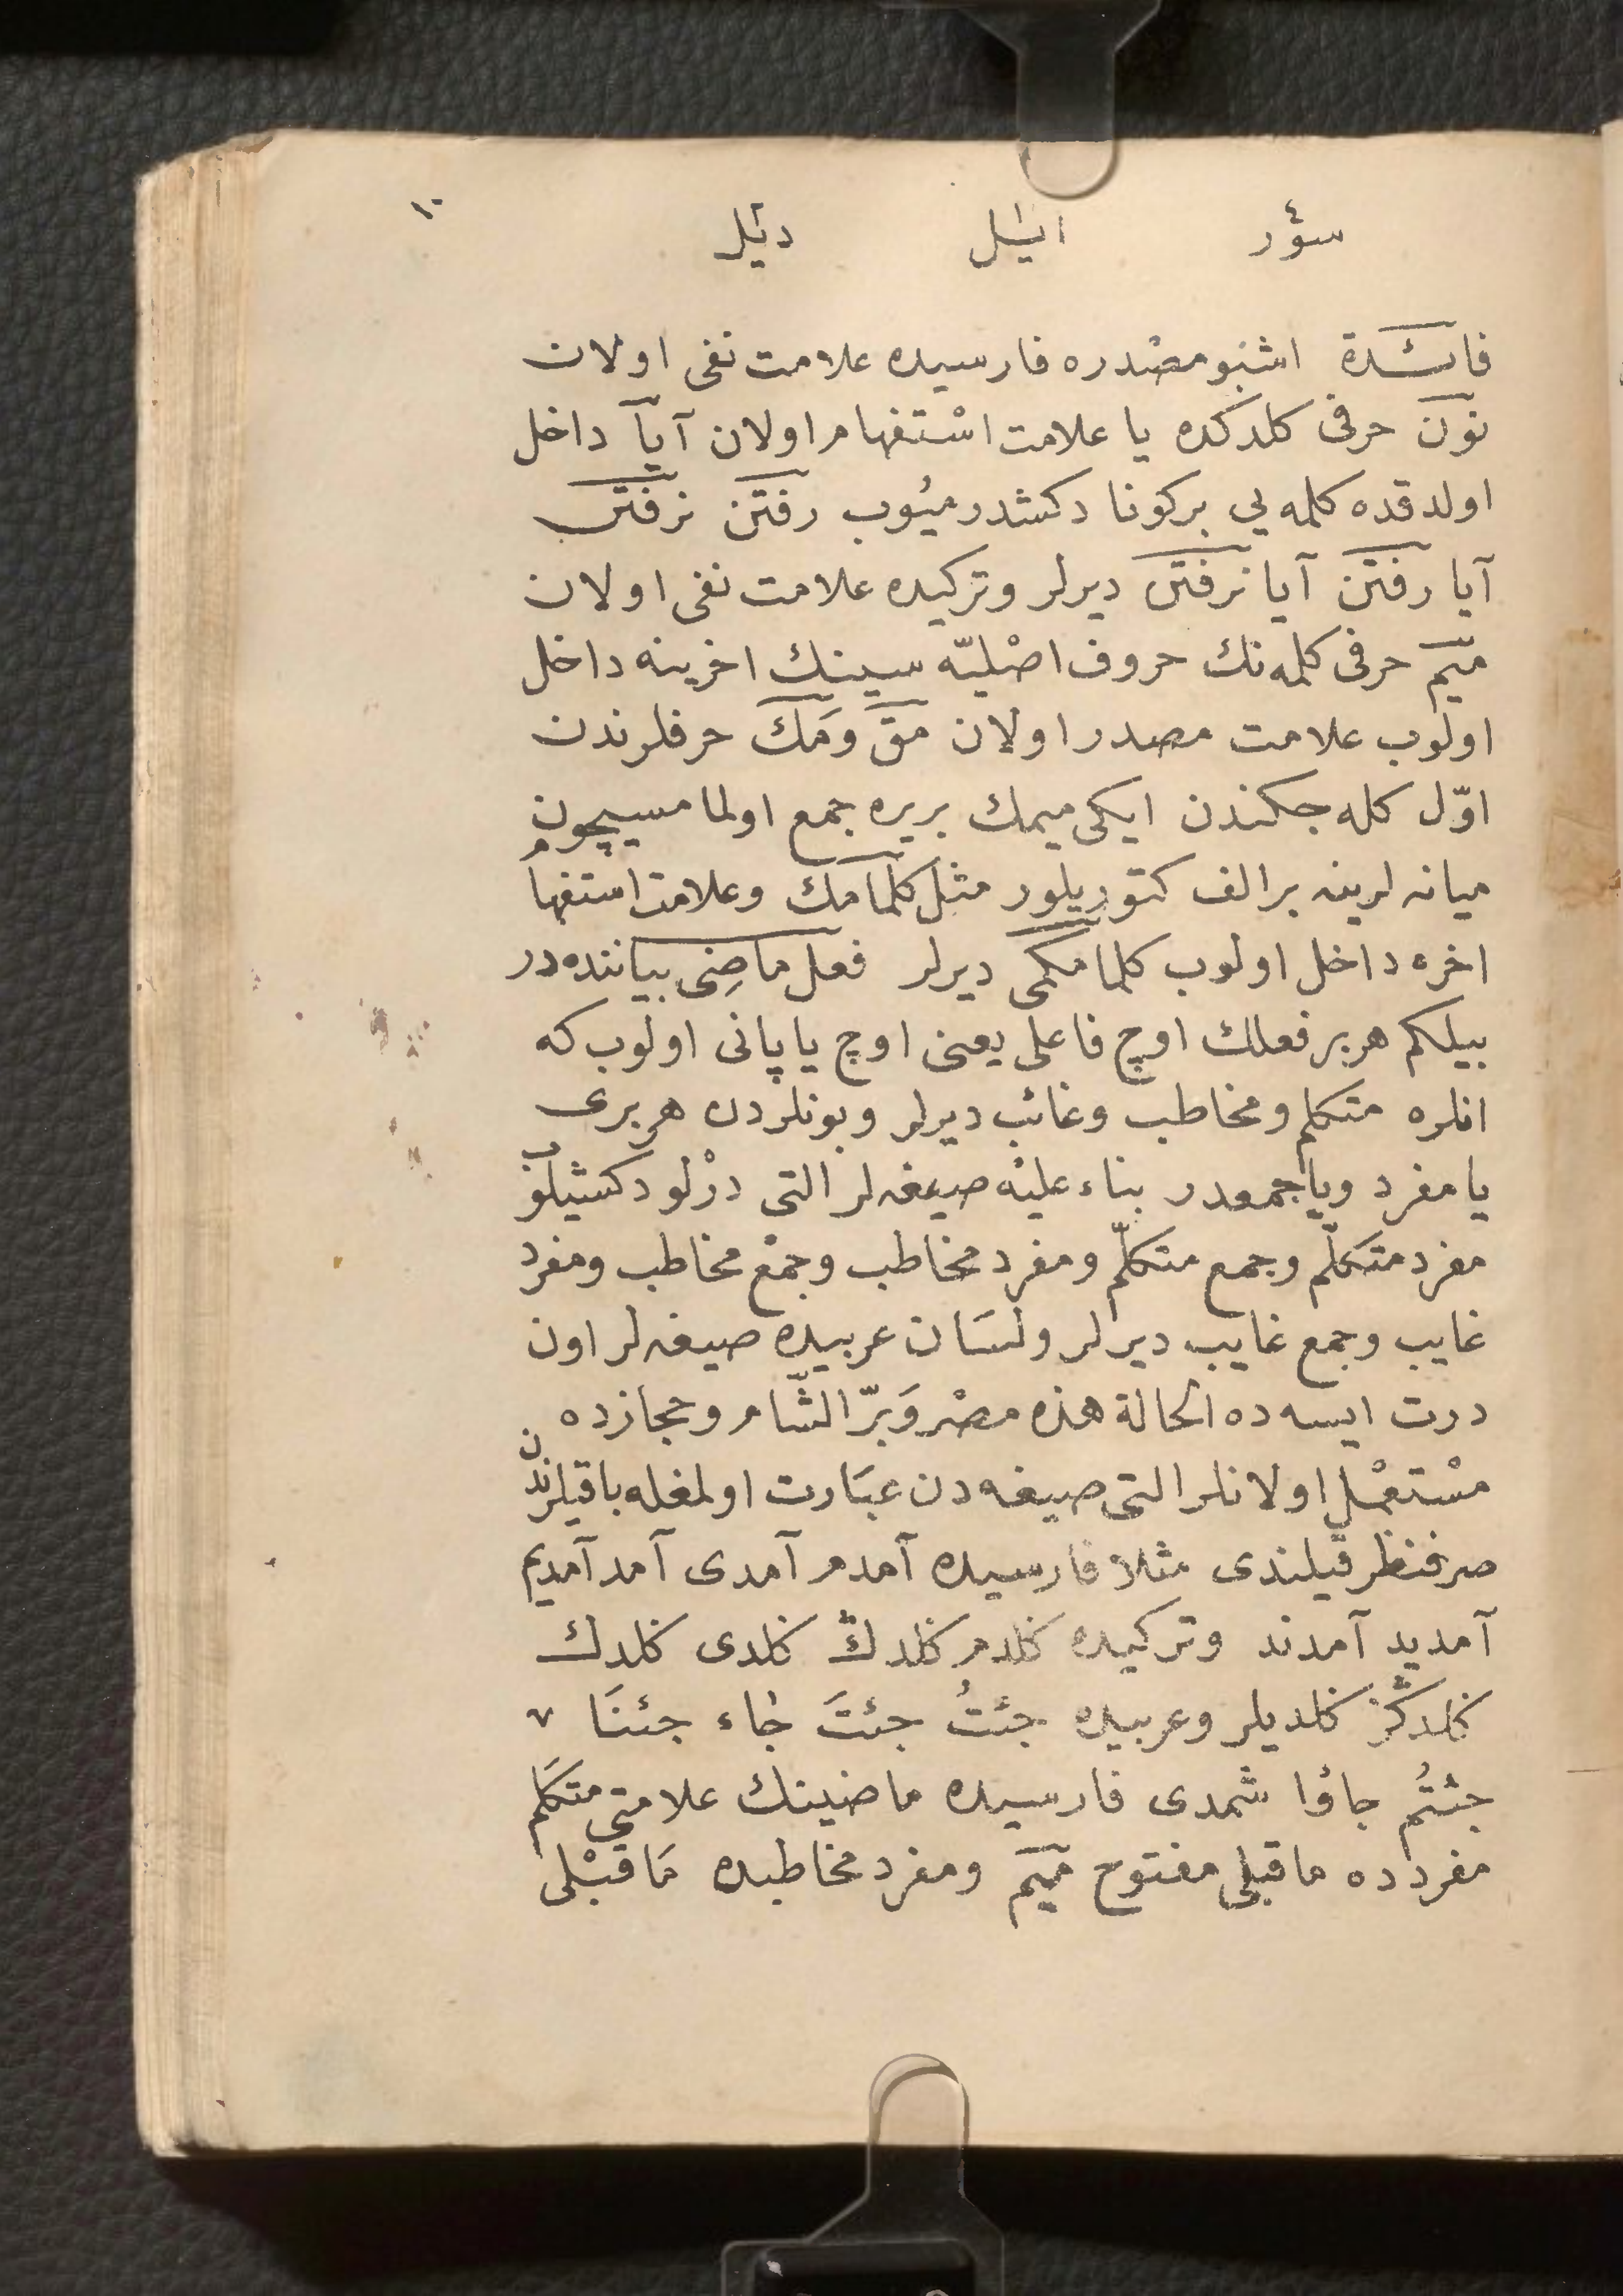 ١٠
سؤر ايتل ديتل
فائدة اشبو مصدره فارسيده علامت نفى اولان
نون حرفى كلدكده يا علامت استفهام اولان آيا داخل
اولدقده كلمه يى بركونا دكشدرميوب رفتن نرفتن
آيا رفتن آيا نرفتن ديرلر وتركيده علامت نفى اولان
ميم حرفى كلمه نك حروف اصْليّه سينك اخرينه داخل
اولوب علامت مصدر اولان مق ومَك حرفلرندن
اوّل كله جكندن ايكى ميمك بريره جمع اولمامسيچون
ميانه لرينه بر الف كتوريلور مثل كلمامك وعلامت استفهام
اخره داخل اولوب كلمامكمى ديرلر فعل ماضِى بياننده در
بيلكم هر بر فعلك اوچ فاعلى يعنى اوچ ياپانى اولوب كه
انلره متكلم ومخاطب وغائب ديرلر وبونلردن هر برى
يا مفرد ويا جمعدر بناء عليْه صيغه لر التى درْلو دكشيلوب
مفرد متكلّم وجمع متكلّم ومفرد مخاطب وجمْع مخاطب ومفرد
غايب وجمع غايب ديرلر ولسَان عربيده صيغه لر اون
درت ايسه ده الحالة هذه مصْر وَبرّ الشّام وحجازده
مسْتعْمل اولانلر التى صيغه دن عبَارت اولمغله باقيلرندن
صرفنظر قيلندى مثلا فارسيده آمدم آمدى آمد آمديم
آمديد آمدند وتركيده كلدم كلدڭ كلدى كلدك
كلدڭز كلديلر وعربيده جئتُ جئتَ جٰاء جئنَا
جئتُم جاؤا شمدى فارسيده ماضينك علامتى متكلم
مفردده ماقبلى مفتوح ميم ومفرد مخاطبده مَاقبْلى